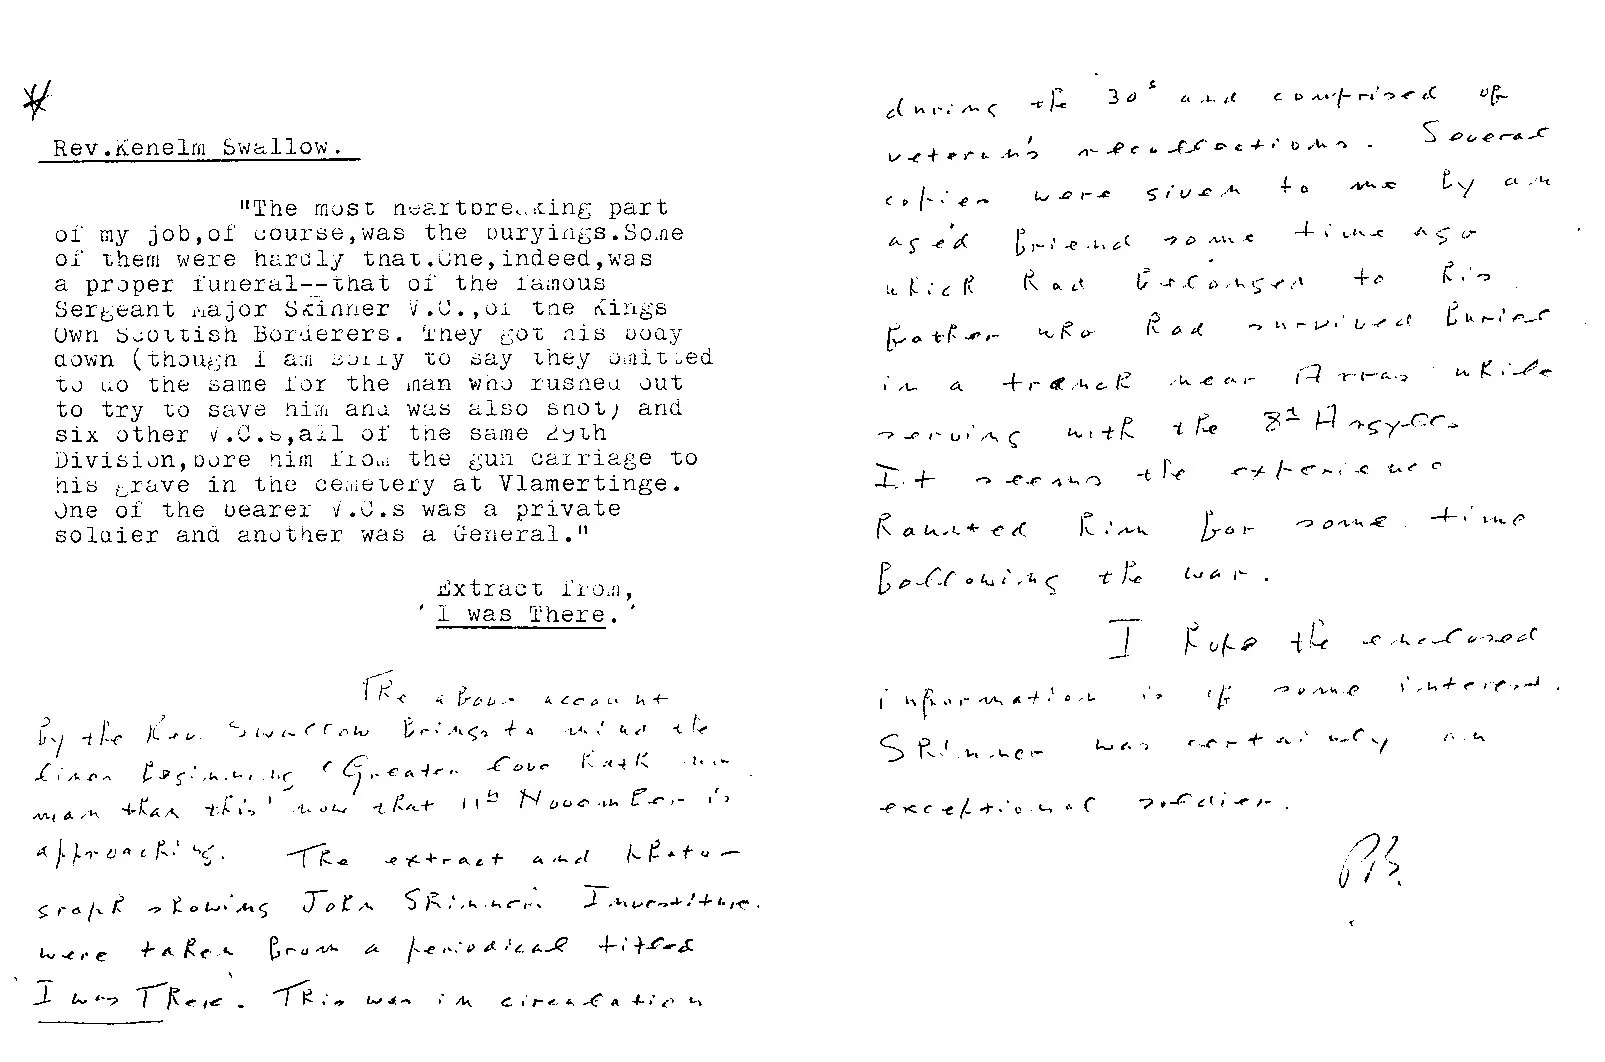 Rev.Kenelm Swallow.
"The most heartbreaking part
of my job,of course,was the buryings.Some
of them were hardly that.One,indeed,was
a proper funeral--that of the famous
Sergeant Major Skinner V.C.,of the Kings
Own Scottish Borderers. They got his body
down (though I am sorry to say they omitted
to do the same for the man who rushed out
to try to save him and was also shot) and
six other V.C.s,all of the same 29th
Division,bore him from the gun carriage to
his grave in the cemetery at Vlamertinge.
One of the bearer V.C.s was a private
soldier and another was a General."
Extract from,
'I was There.'
The above account
by the Rev. Swallow brings to mind the
lines beginning 'Greater love hath no
man than this' now that 11th November is
approaching. The extract and photo-
graph showing John Skinners Investiture.
were taken from a periodical titled
'I was There'. This was in circulation
during the 30s and comprised of
veteran's recollections. Several
copies were given to me by an
aged friend some time ago
which had belonged to his
father who had survived burial
in a trench near Arras while
serving with the 8th Argylls.
It seems the experience
haunted him for some time
following the war.
I hope the enclosed
information is of some interest.
Skinner was certainly an
exceptional soldier.
PB.